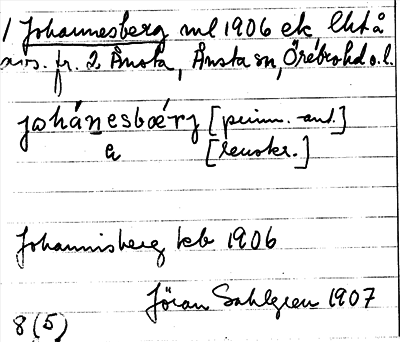 1 Johannesberg ml 1906 ek lht å
avs. fr. 2 Ånsta, Ånsta sn, Örebro hd o.l.
johánesbærj [prim.-ant.]
a [renskr.]
Johannisberg kb 1906
Jöran Sahlgren 1907
8 (5)